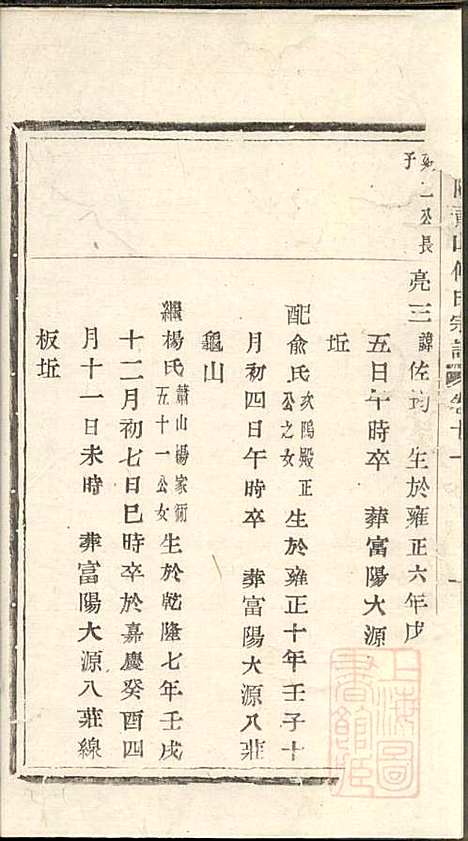 山何氏宗譜 卷十一
一公長子
亮三 諱佐均 生於雍正六年戊
五日午時卒 葬富陽大源
坵
配俞氏 次塢殿正公之女 生於雍正十年壬子十
月初四日午時卒 葬富陽大源八莊
龜山
繼楊氏 蕭山楊家衖五十一公女 生於乾隆七年壬戌
十二月初七日巳時卒於嘉慶癸酉四
月十一日未時 葬富陽大源八莊線
板坵
上海圖書館藏